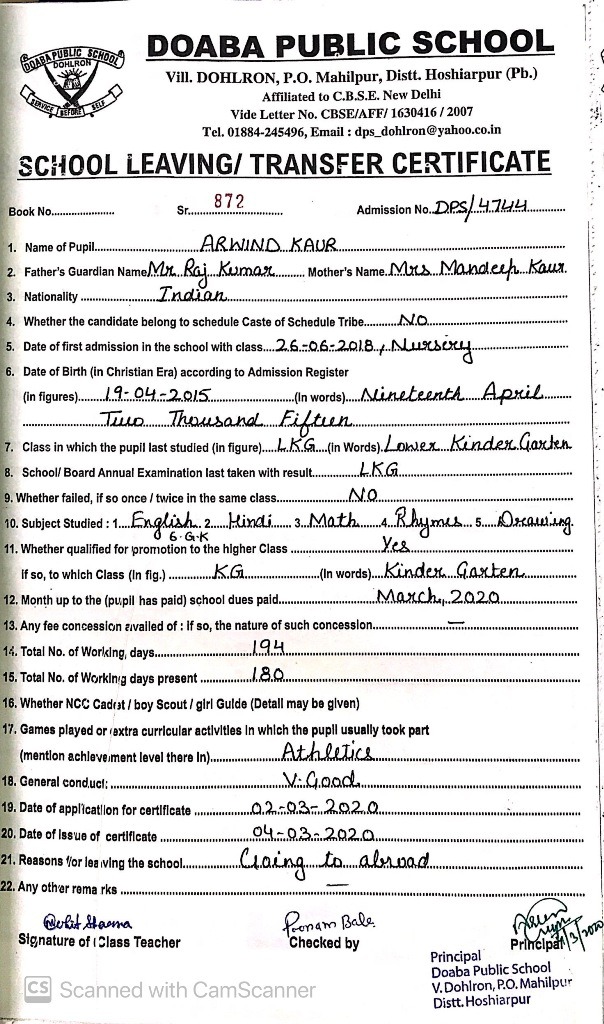 DOABA PUBLIC SCHOOL
DOABA PUBLIC SCHOOL
DOHLRON
SERVICE BEFORE SELF
Vill. DOHLRON, P.O. Mahilpur, Distt. Hoshiarpur (Pb.)
Affiliated to C.B.S.E. New Delhi
Vide Letter No. CBSE/AFF/ 1630416 / 2007
Tel. 01884-245496, Email : dps_dohlron@yahoo.co.in
SCHOOL LEAVING/ TRANSFER CERTIFICATE
Book No.................. Sr. 872 Admission No. DPS/4744
1. Name of Pupil ARWIND KAUR
2. Father's Guardian Name Mr. Raj Kumar Mother's Name Mrs Mandeep Kaur
3. Nationality Indian
4. Whether the candidate belong to schedule Caste of Schedule Tribe NO
5. Date of first admission in the school with class 26-06-2018, Nursery
6. Date of Birth (in Christian Era) according to Admission Register
(in figures) 19-04-2015 (In words) Nineteenth April
Two Thousand Fifteen
7. Class in which the pupil last studied (in figure) LKG (in Words) Lower Kinder Garten
8. School/ Board Annual Examination last taken with result LKG
9. Whether failed, if so once / twice in the same class NO
10. Subject Studied : 1. English 2. Hindi 3. Math 4. Rhymes 5. Drawing
6. G.K
11. Whether qualified for promotion to the higher Class Yes
If so, to which Class (In fig.) KG (In words) Kinder Garten
12. Month up to the (pupil has paid) school dues paid March, 2020
13. Any fee concession availed of : If so, the nature of such concession —
14. Total No. of Working, days 194
15. Total No. of Working days present 180
16. Whether NCC Cadet / boy Scout / girl Guide (Detail may be given)
17. Games played or extra curricular activities in which the pupil usually took part
(mention achievement level there in) Athletics
18. General conduct: V. Good
19. Date of application for certificate 02-03-2020
20. Date of issue of certificate 04-03-2020
21. Reasons for leaving the school Going to abroad
22. Any other remarks —
Poonam Bala
Signature of Class Teacher Checked by Principal
Principal
Doaba Public School
V. Dohlron, P.O. Mahilpur
Distt. Hoshiarpur
CS Scanned with CamScanner